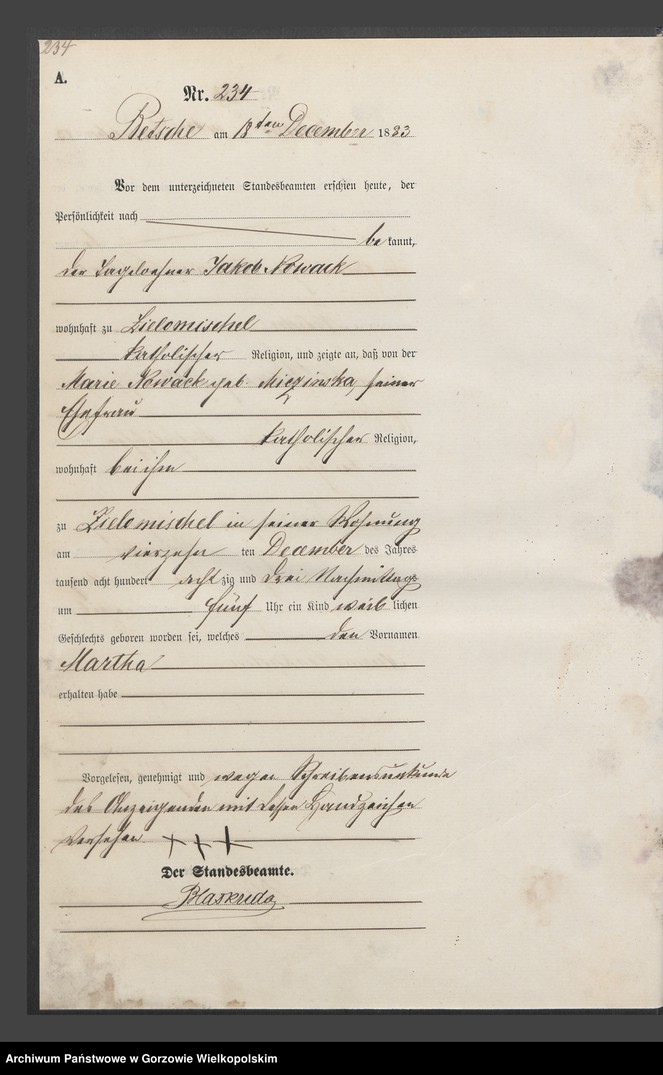 234
A.
Nr. 234
Betsche am 18ten December 1883
Vor dem unterzeichneten Standesbeamten erschien heute, der
Persönlichkeit nach
be kannt,
der Tageloehner Jakob Nowack
wohnhaft zu Zielomischel
katholischer Religion, und zeigte an, daß von der
Marie Nowack geb. seiner
Ehefrau
katholischer Religion,
wohnhaft bei ihm
zu Zielomischel in seiner Wohnung
am vierzehn ten December des Jahres
tausend acht hundert acht zig und drei Nachmittags
um fünf Uhr ein Kind weib lichen
Geschlechts geboren worden sei, welches den Vornamen
Martha
erhalten habe
Vorgelesen, genehmigt und wegen Schreibensunkunde
des Anzeigenden mit dessen Handzeichen
versehen + + +
Der Standesbeamte.
Archiwum Państwowe w Gorzowie Wielkopolskim